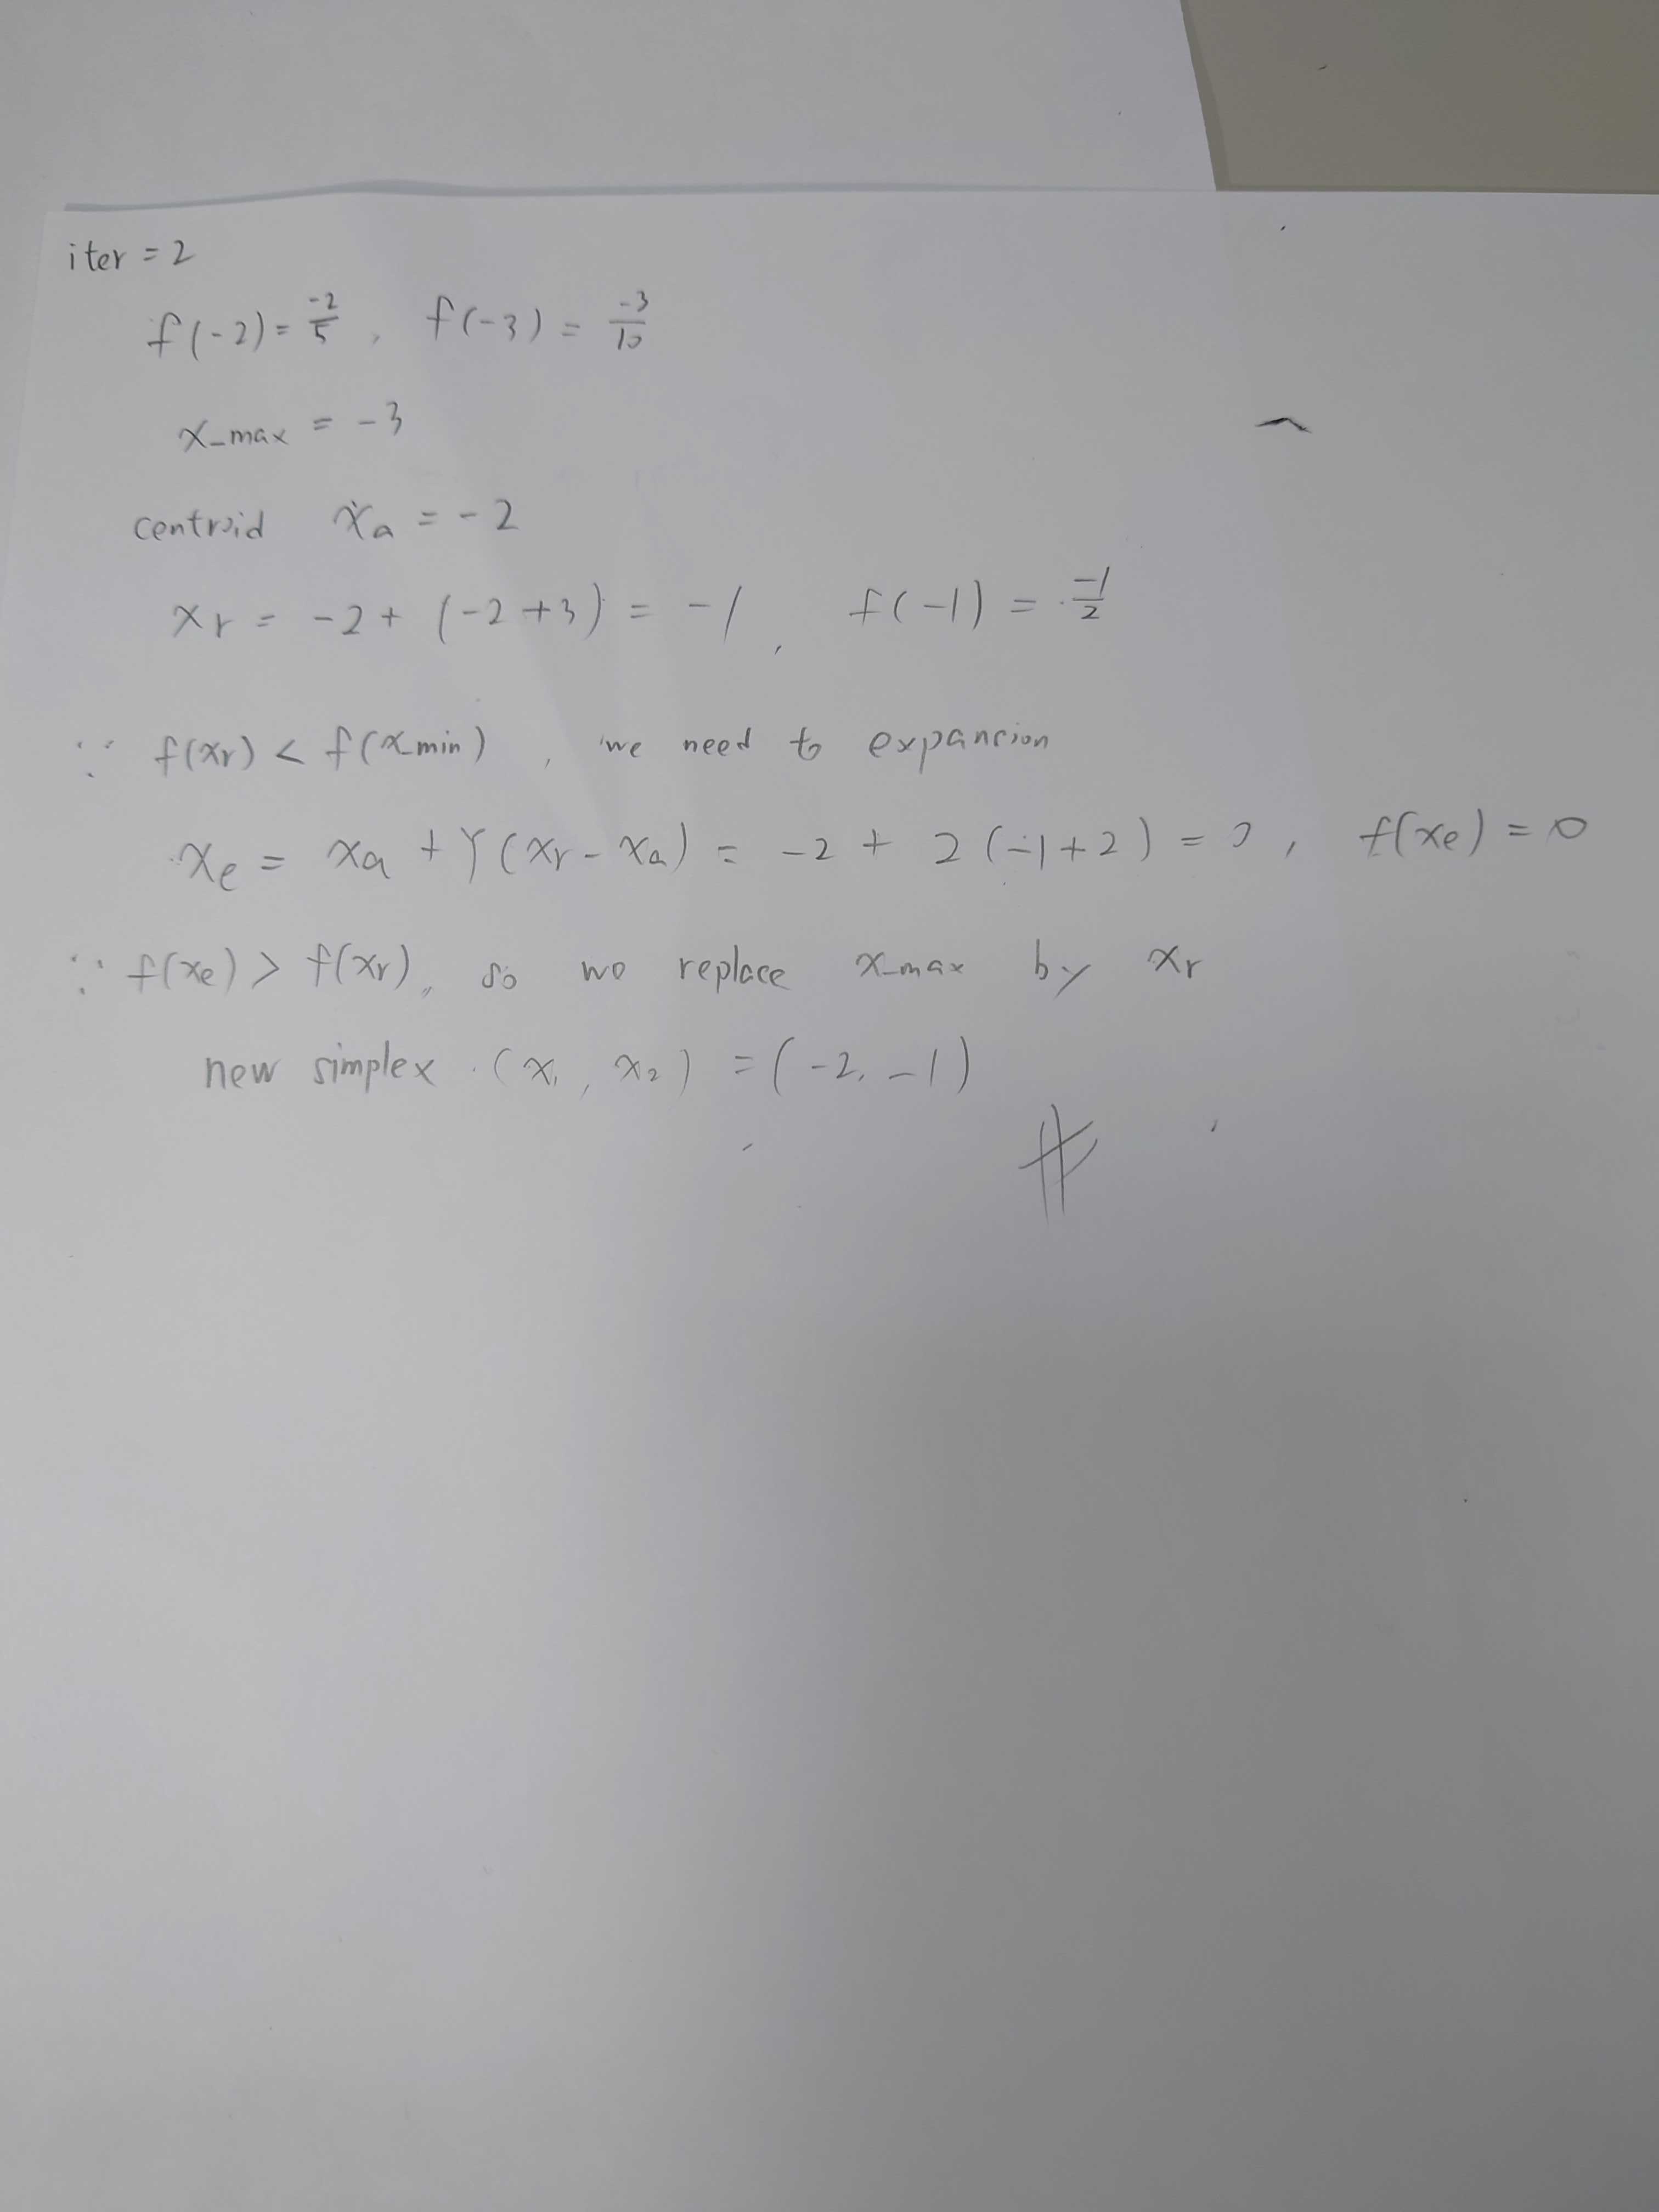 iter = 2
f(-2) = -2/5 , f(-3) = -3/10
x_max = -3
centroid xa = -2
xr = -2 + (-2+3) = -1 , f(-1) = -1/2
∵ f(xr) < f(x_min) , we need to expansion
xe = xa + γ(xr - xa) = -2 + 2(-1+2) = 0 , f(xe) = 0
∵ f(xe) > f(xr), so we replace x_max by xr
new simplex (x1, x2) = (-2, -1)
#